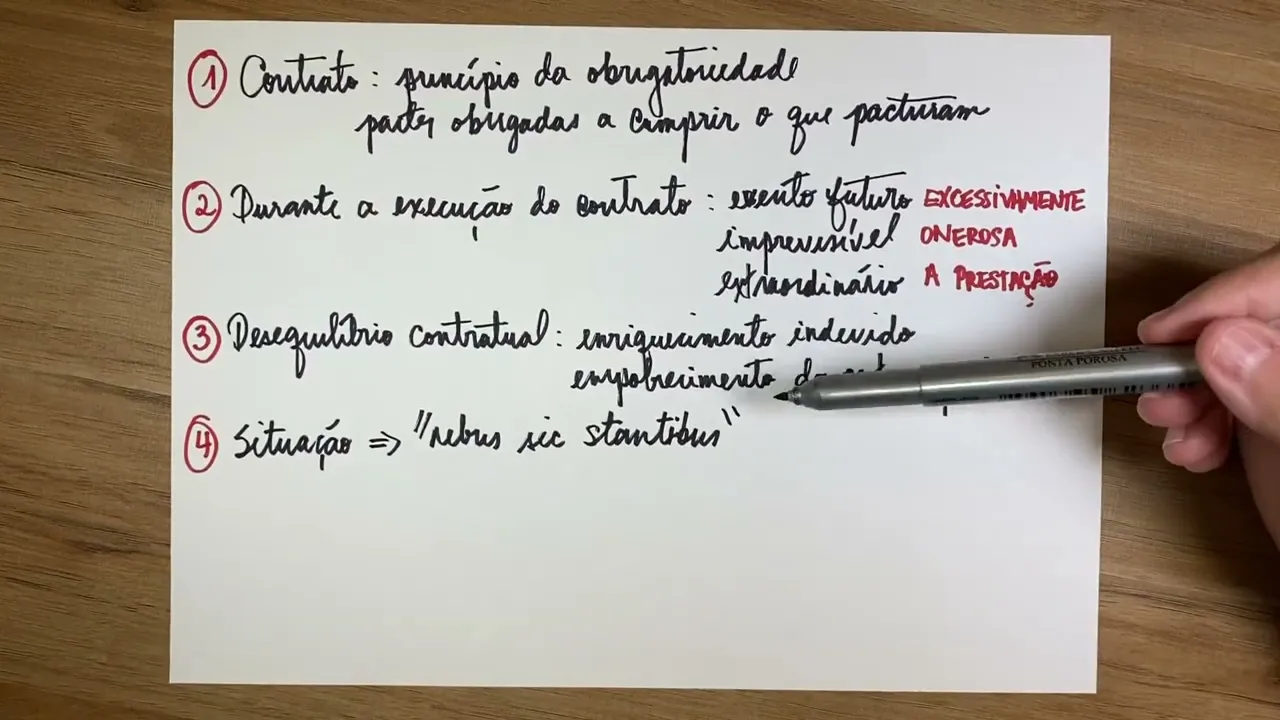 1 Contrato: princípio da obrigatoriedade
partes obrigadas a cumprir o que pacturam
2 Durante a execução do contrato: evento futuro EXCESSIVAMENTE
imprevisível ONEROSA
extraordinário A PRESTAÇÃO
3 Desequilíbrio contratual: enriquecimento indevido
empobrecimento
PONTA POROSA
4 Situação => "rebus sic stantibus"